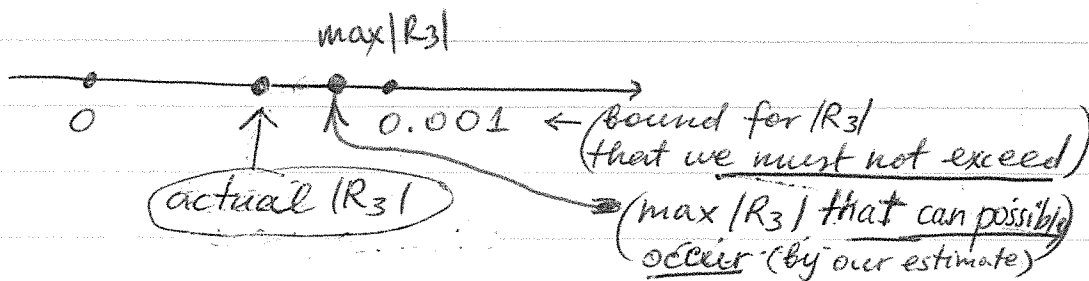 max|R3|
0 0.001 ← (bound for |R3|
(that we must not exceed)
actual |R3|
(max |R3| that can possibly
occur (by our estimate)